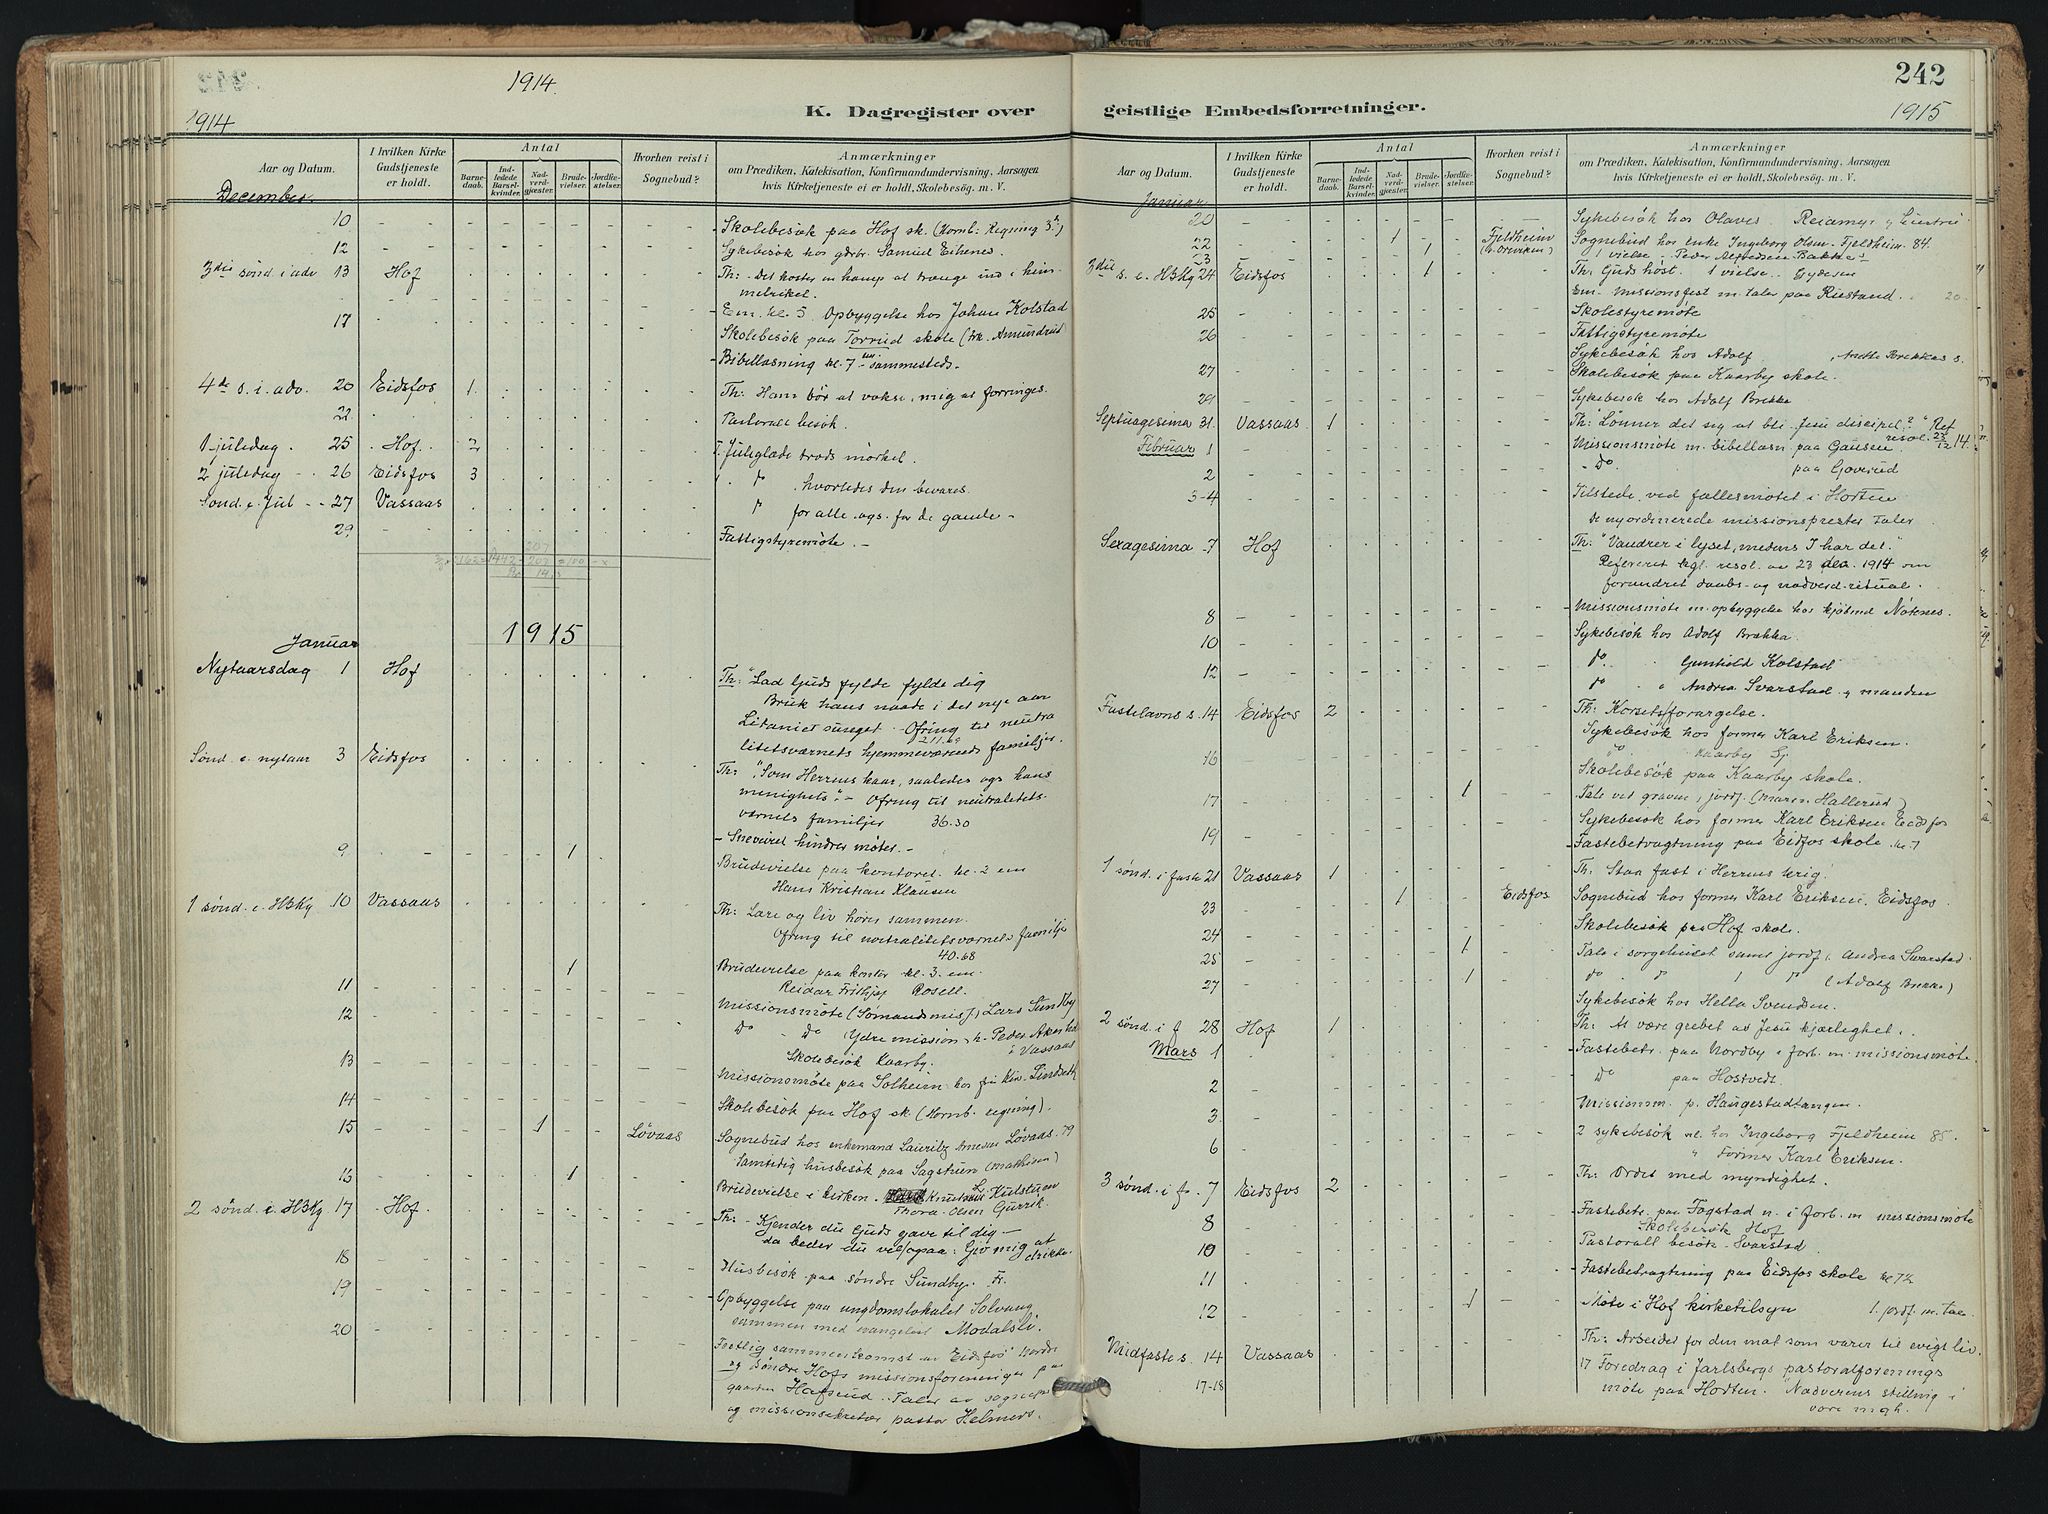 1914.
242
1914
K. Dagregister over geistlige Embedsforretninger.
1915
Aar og Datum.
I hvilken Kirke Gudstjeneste er holdt.
Antal
Barnedaab.
Indledede Barselkvinder.
Nadverdgjester.
Brudevielser.
Jordfæstelser.
Hvorhen reist i Sognebud?
Anmærkninger
om Prædiken, Katekisation, Konfirmandundervisning, Aarsagen
hvis Kirketjeneste ei er holdt, Skolebesøg. m. V.
December.
10 Skolebesøk paa Hof sk.
12 Sykebesøk hos Samuel
3die sønd. i adv 13 Hof Th: Det koster en kamp at trænge ind i himmelriket.
Em. kl. 5 Opbyggelse hos Johan Kolstad
17 Skolebesøk paa Torrud skole
Bibellæsning kl. 7 sammesteds.
4de s. i. adv. 20 Eidsfos 1 Th: Ham bør at vokse, mig at forringes.
22 Pastoralt besøk.
1 juledag. 25 Hof. 2 Juleglæde trods mørket.
2 juledag 26 Eidsfos 3 do hvorledes den bevares.
Sønd. e. Jul 27 Vassaas do for alle ogs. for de gamle
29 Fattigstyremøte.
Januar 1915
Nytaarsdag 1 Hof Th: "Lad Guds fylde fylde dig
Bruk hans naade i det nye aar
Litaniet sunget. Ofring til neutralitetsværnets hjemmeværende familjer.
Sønd. e. nytaar 3 Eidsfos Th: "Som Herrens kaar, saaledes ogs hans
menighets". Ofring til neutralitetsværnets familjer 36.30
Snevæiret hindrer møtet.
9 1 Brudevielse paa kontoret kl. 2 em
Hans Kristian Klausen
1 sønd. e. H3Kg 10 Vassaas Th: Lære og liv hører sammen.
Ofring til neutralitetsværnets familje
40.68
1 Brudevielse paa kontor kl. 3. em.
Reidar Fritjof Rosell.
11 Missionsmøte (Sømandsmisj) Lars Sundby
12 do do Ydre mission h. Peder
i Vassaas
13 Skolebesøk Kaarby.
Missionsmøte paa Solheim hos
14 Skolebesøk paa Hof sk. (Hornb. regning).
15 1 Løvaas Sognebud hos enkemand Lauritz Løvaas. 79
Samtidig husbesøk paa Sagstuen (Mathisen)
16 1 Brudevielse i kirken. Hulstuen
Thora Olsen
2 sønd. e. H3Kg 17 Hof. Th: Kjender du Guds gave til dig
da beder du vel ogsaa: Giv mig at drikke.
18 Husbesøk paa søndre Sundby.
19 Opbyggelse paa ungdomslokalet Solvang
sammen med evangelist Modalsli.
20 Festlig sammenkomst av Eidsfos Nordre
og Søndre Hofs missionsforeninger paa
gaarden Hafsrud. Taler av sogneprest
og missionsekretær pastor Helmers.
Aar og Datum.
I hvilken Kirke Gudstjeneste er holdt.
Antal
Barnedaab.
Indledede Barselkvinder.
Nadverdgjester.
Brudevielser.
Jordfæstelser.
Hvorhen reist i Sognebud?
Anmærkninger
om Prædiken, Katekisation, Konfirmandundervisning, Aarsagen
hvis Kirketjeneste ei er holdt. Skolebesøg. m. V.
Januar
20 Sykebesøk hos Olaves
22 1 Fjeldheim Sognebud hos enke Ingeborg Olsen Fjeldheim. 84.
23 1 1 vielse. Peder Alfredsen Bakke
3die s. e. H3Kg 24 Eidsfos 1 Th: Guds høst. 1 vielse.
Em. missionsfest m. taler paa Rustand.
25 Skolestyremøte
26 Fattigstyremøte
Sykebesøk hos Adolf
27 Skolebesøk paa Kaarby skole.
29 Sykebesøk hos Adolf Brekke
Septuagesima 31. Vassaas 1 Th: "Lønner det sig at bli Jesu discipel?" Ref
resol. 23/12 14.
Februar 1 Missionsmøte m. bibellæsn paa Gausen
2 do paa Goverud
3-4 Tilstede ved fællesmøtet i Horten
De nyordinerede missionsprester taler
Sexagesima 7 Hof Th: "Vandrer i lyset, medens I har det."
Refereret kgl. resol. av 23 dec. 1914 om
forandret daabs- og nadverd-ritual.
8 Missionsmøte m. opbyggelse hos kjøbmd Nøtenes.
10 Sykebesøk hos Adolf Brekke.
do. Gunhild Kolstad
12 do Andrea Svarstad og manden
Fastelavns s. 14 Eidsfos 2 Th: Korsetsforargelse.
Sykebesøk hos former Karl Eriksen.
16 do Kaarby
Skolebesøk paa Kaarby skole.
17 1 Tale ved graven, jordf. (Maren Hallerud)
Sykebesøk hos former Karl Eriksen Eidsfos
19 Fastebetragtning paa Eidfos skole. kl. 7
1 sønd. i faste 21 Vassaas 1 Th: Staa fast i Herrens krig!
23 1 Eidsfos Sognebud hos former Karl Eriksen, Eidsfos.
Skolebesøk paa Hof skole.
24 1 Tale i sorgehuset samt jordf. Andrea Svarstad.
25 do do (Adolf Brekke)
27 1 Sykebesøk hos Hella Svendsen.
2 sønd. i f 28 Hof 1 Th: At være grebet av Jesu kjærlighet.
Mars 1 Fastebetr. paa Nordby i forb. m. missionsmøte.
2 do paa Hostvedt.
3. Missionsm. p. Haugestadtangen.
6 2 sykebesøk hos Ingeborg Fjeldheim 85.
" former Karl Eriksen.
3 sønd. i fa. 7 Eidsfos 2 Th: Ordet med myndighet.
8 Fastebetr. paa Fogstad n. i forb. m missionsmøte
Skolebesøk Hof
10 Pastoralt besøk - Svarstad.
11 Fastebetragtning paa Eidsfos skole kl 7½
12 1 Møte i Hof kirketilsyn 1. jordf. m. tale
Midfastes. 14 Vassaas Th: Arbeider for den mat som varer til evigt liv.
17-18 17 Foredrag i Jarlsbergs pastoralforenings
møte paa Horten. "Nadverens stilling i
vore mgh.